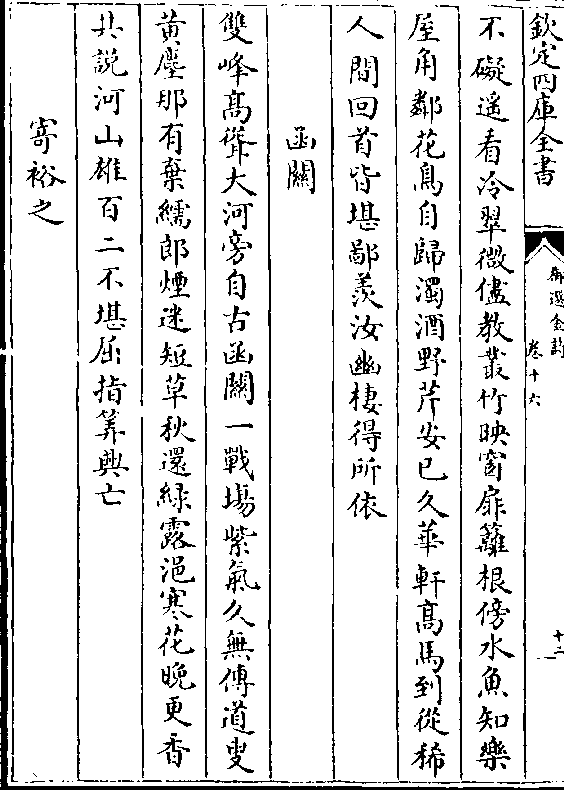 欽定四庫全書
御選金詩
卷十六
十二
不礙遥看冷翠微儘教叢竹映窗扉籬根傍水魚知樂
屋角鄰花鳥自歸濁酒野芹安已久華軒髙馬到從稀
人間回首皆堪鄙羨汝幽棲得所依
函關
雙峰髙聳大河旁自古函關一戰塲紫氣久無傳道叟
黄塵那有棄繻郎煙迷短草秋還緑露浥寒花晚更香
共説河山雄百二不堪屈指筭興亡
寄裕之